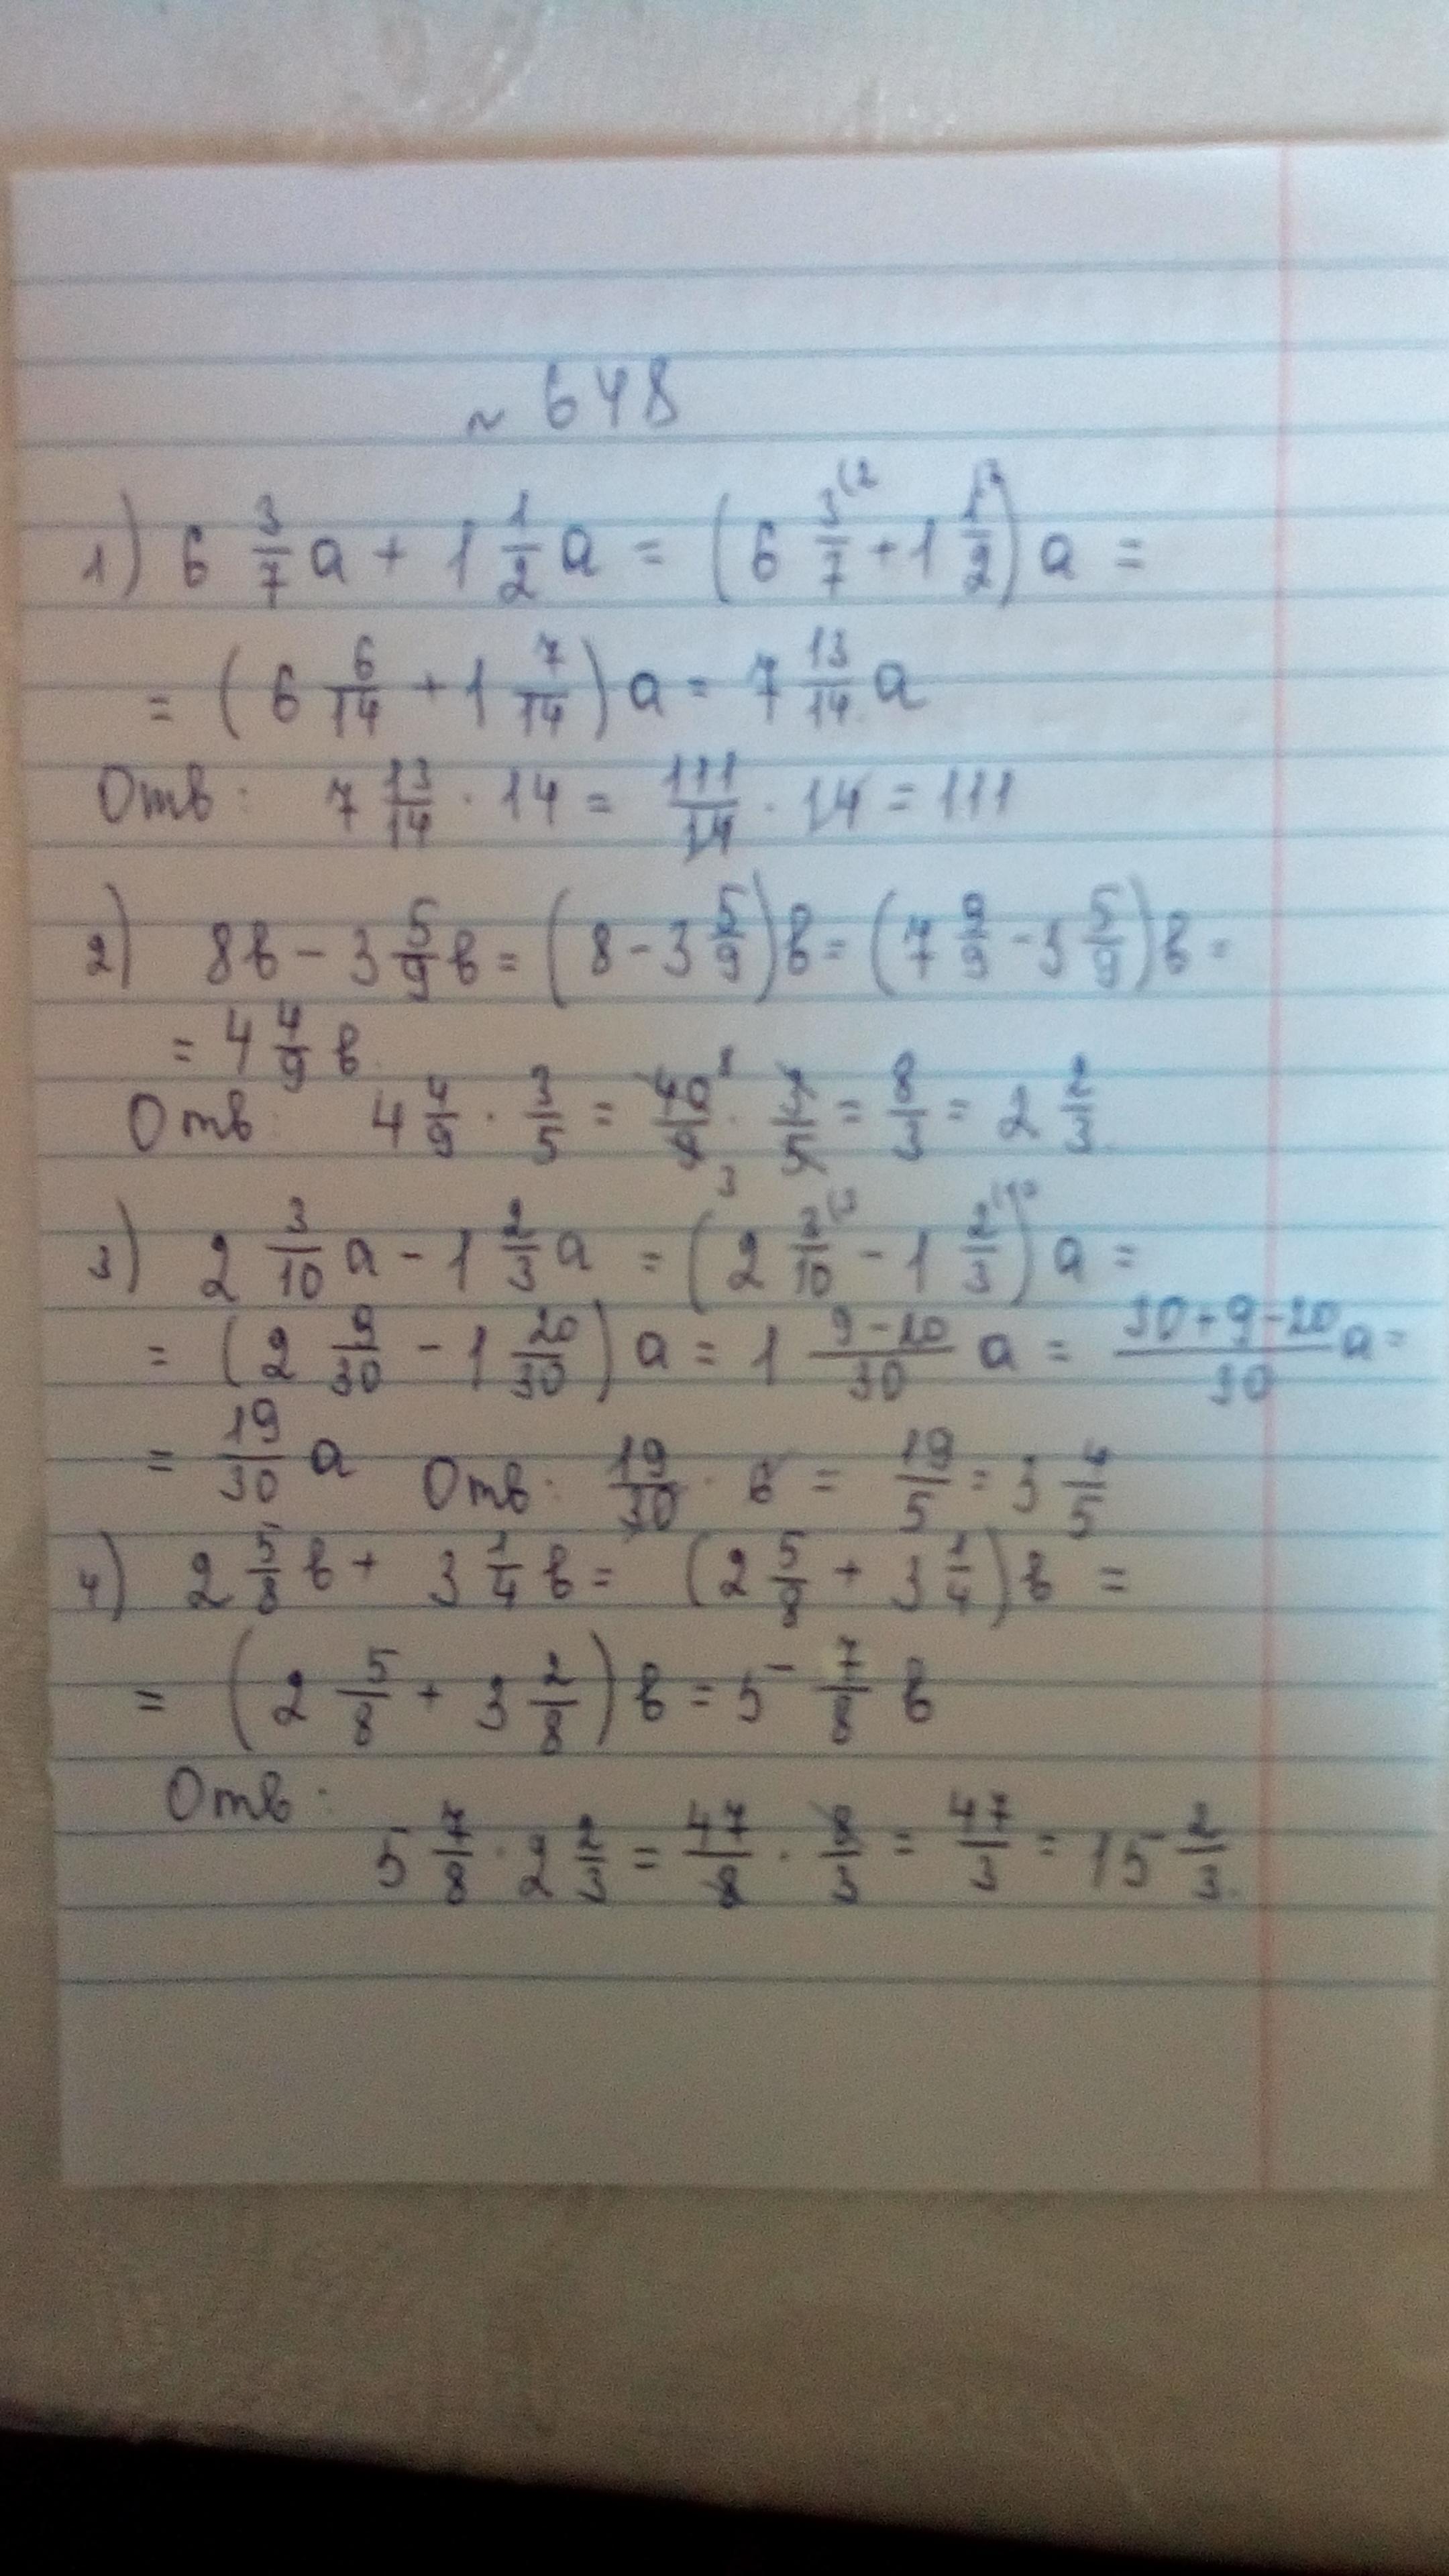 ~ 648
1) 6 3/7 a + 1 1/2 a = (6 3/7 (2 + 1 1/2) a =
= (6 6/14 + 1 7/14) a = 7 13/14 a
Отв: 7 13/14 · 14 = 111/14 · 14 = 111
2) 8в - 3 5/9 в = (8 - 3 5/9) в = (7 9/9 - 3 5/9) в =
= 4 4/9 в
Отв: 4 4/9 · 3/5 = 40/9 8 3 · 3/5 = 8/3 = 2 2/3
3) 2 3/10 a - 1 2/3 a = (2 3/10 (3 - 1 2/3 (10) a =
= (2 9/30 - 1 20/30) a = 1 9-20/30 a = 30+9-20/30 a =
= 19/30 a Отв: 19/30 · 6 = 19/5 = 3 4/5
4) 2 5/8 в + 3 1/4 в = (2 5/8 + 3 1/4) в =
= (2 5/8 + 3 2/8) в = 5 7/8 в
Отв:
5 7/8 · 2 2/3 = 47/8 · 8/3 = 47/3 = 15 2/3